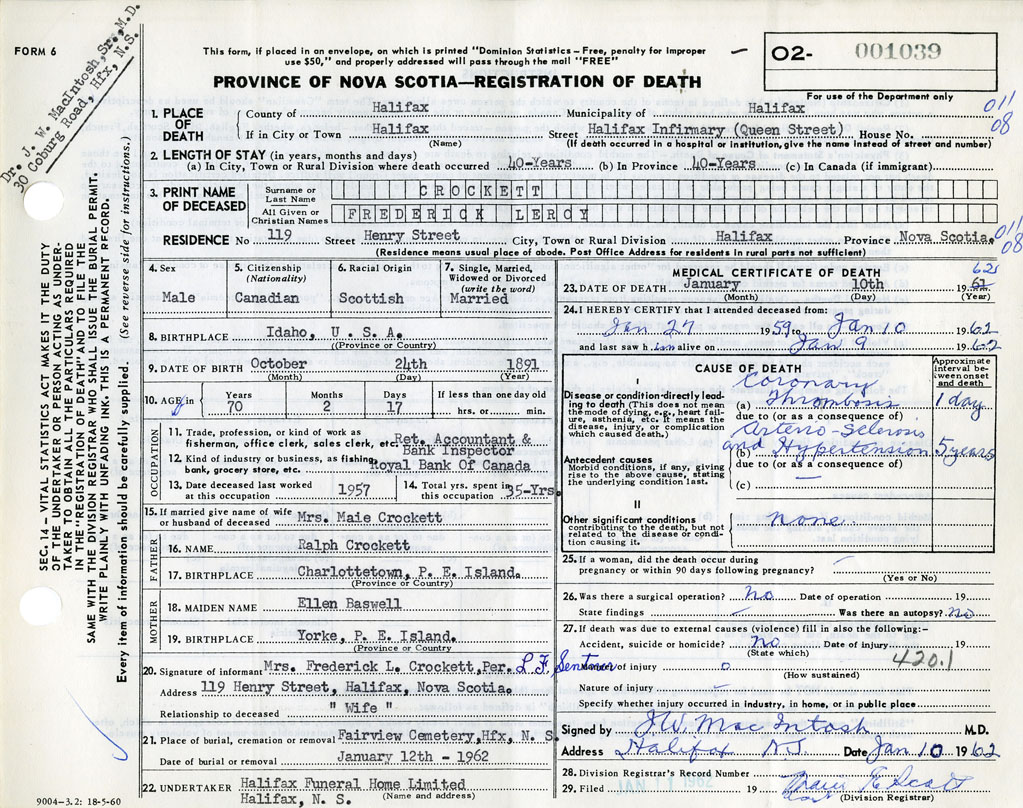 Dr. J. W. MacIntosh, Sr., M.D.
30 Coburg Road, Hfx, N.S.
FORM 6
This form, if placed in an envelope, on which is printed "Dominion Statistics – Free, penalty for improper
use $50," and properly addressed will pass through the mail "FREE"
PROVINCE OF NOVA SCOTIA—REGISTRATION OF DEATH
O2- 001039
For use of the Department only
011
08
1. PLACE OF DEATH County of Halifax Municipality of Halifax
If in City or Town Halifax Street Halifax Infirmary (Queen Street) House No.
(Name) (If death occurred in a hospital or institution, give the name instead of street and number)
2. LENGTH OF STAY (in years, months and days)
(a) In City, Town or Rural Division where death occurred 40-Years (b) In Province 40-Years (c) In Canada (if immigrant)
3. PRINT NAME OF DECEASED
Surname or Last Name CROCKETT
All Given or Christian Names FREDERICK LEROY
RESIDENCE No 119 Street Henry Street City, Town or Rural Division Halifax Province Nova Scotia.
011
08
(Residence means usual place of abode. Post Office Address for residents in rural parts not sufficient)
4. Sex Male
5. Citizenship (Nationality) Canadian
6. Racial Origin Scottish
7. Single, Married, Widowed or Divorced (write the word) Married
8. BIRTHPLACE Idaho, U.S.A.
(Province or Country)
9. DATE OF BIRTH October 24th 1891
(Month) (Day) (Year)
10. AGE in Years 70 Months 2 Days 17 If less than one day old hrs. or min.
OCCUPATION
11. Trade, profession, or kind of work as
fisherman, office clerk, sales clerk, etc. Ret. Accountant &
Bank Inspector
12. Kind of industry or business, as fishing,
bank, grocery store, etc. Royal Bank Of Canada
13. Date deceased last worked at this occupation 1957
14. Total yrs. spent in this occupation 35-Yrs.
15. If married give name of wife
or husband of deceased Mrs. Maie Crockett
FATHER
16. NAME Ralph Crockett
17. BIRTHPLACE Charlottetown, P. E. Island.
(Province or Country)
MOTHER
18. MAIDEN NAME Ellen Baswell
19. BIRTHPLACE Yorke, P. E. Island.
(Province or Country
20. Signature of informant Mrs. Frederick L. Crockett, Per. L.F. Sentner
Address 119 Henry Street, Halifax, Nova Scotia.
Relationship to deceased " Wife "
21. Place of burial, cremation or removal Fairview Cemetery, Hfx, N. S.
Date of burial or removal January 12th - 1962
22. UNDERTAKER Halifax Funeral Home Limited
Halifax, N. S. (Name and address)
9004-3.2: 18-5-60
SEC. 14 – VITAL STATISTICS ACT MAKES IT THE DUTY
OF THE UNDERTAKER OR PERSON ACTING AS UNDER-
TAKER TO OBTAIN ALL THE PARTICULARS REQUIRED
IN THE "REGISTRATION OF DEATH" AND TO FILE THE
SAME WITH THE DIVISION REGISTRAR WHO SHALL ISSUE THE BURIAL PERMIT.
WRITE PLAINLY WITH UNFADING INK. THIS IS A PERMANENT RECORD.
Every item of information should be carefully supplied. (See reverse side for instructions.)
MEDICAL CERTIFICATE OF DEATH
23. DATE OF DEATH January 10th 1961 62
(Month) (Day) (Year)
24. I HEREBY CERTIFY that I attended deceased from:
Jan 27 1959 to Jan 10 1962
and last saw him alive on Jan 9 1962
CAUSE OF DEATH
Approximate interval between onset and death
I
Disease or condition directly leading to death (This does not mean the mode of dying, e.g., heart failure, asthenia, etc. It means the disease, injury, or complication which caused death.)
(a) Coronary Thrombosis 1 day
due to (or as a consequence of)
Antecedent causes
Morbid conditions, if any, giving rise to the above cause, stating the underlying condition last.
(b) Arterio-Sclerosis and Hypertension 5 years
due to (or as a consequence of)
(c)
II
Other significant conditions contributing to the death, but not related to the disease or condition causing it. none.
25. If a woman, did the death occur during
pregnancy or within 90 days following pregnancy? –
(Yes or No)
26. Was there a surgical operation? No Date of operation 19
State findings – Was there an autopsy? No
27. If death was due to external causes (violence) fill in also the following:–
Accident, suicide or homicide? No Date of injury 19
(State which) 420.1
Manner of injury 0
(How sustained)
Nature of injury –
Specify whether injury occurred in industry, in home, or in public place
Signed by J.W. MacIntosh M.D.
Address Halifax N.S. Date Jan 10 1962
28. Division Registrar's Record Number
29. Filed JAN 11 1962 19
(Division Registrar)